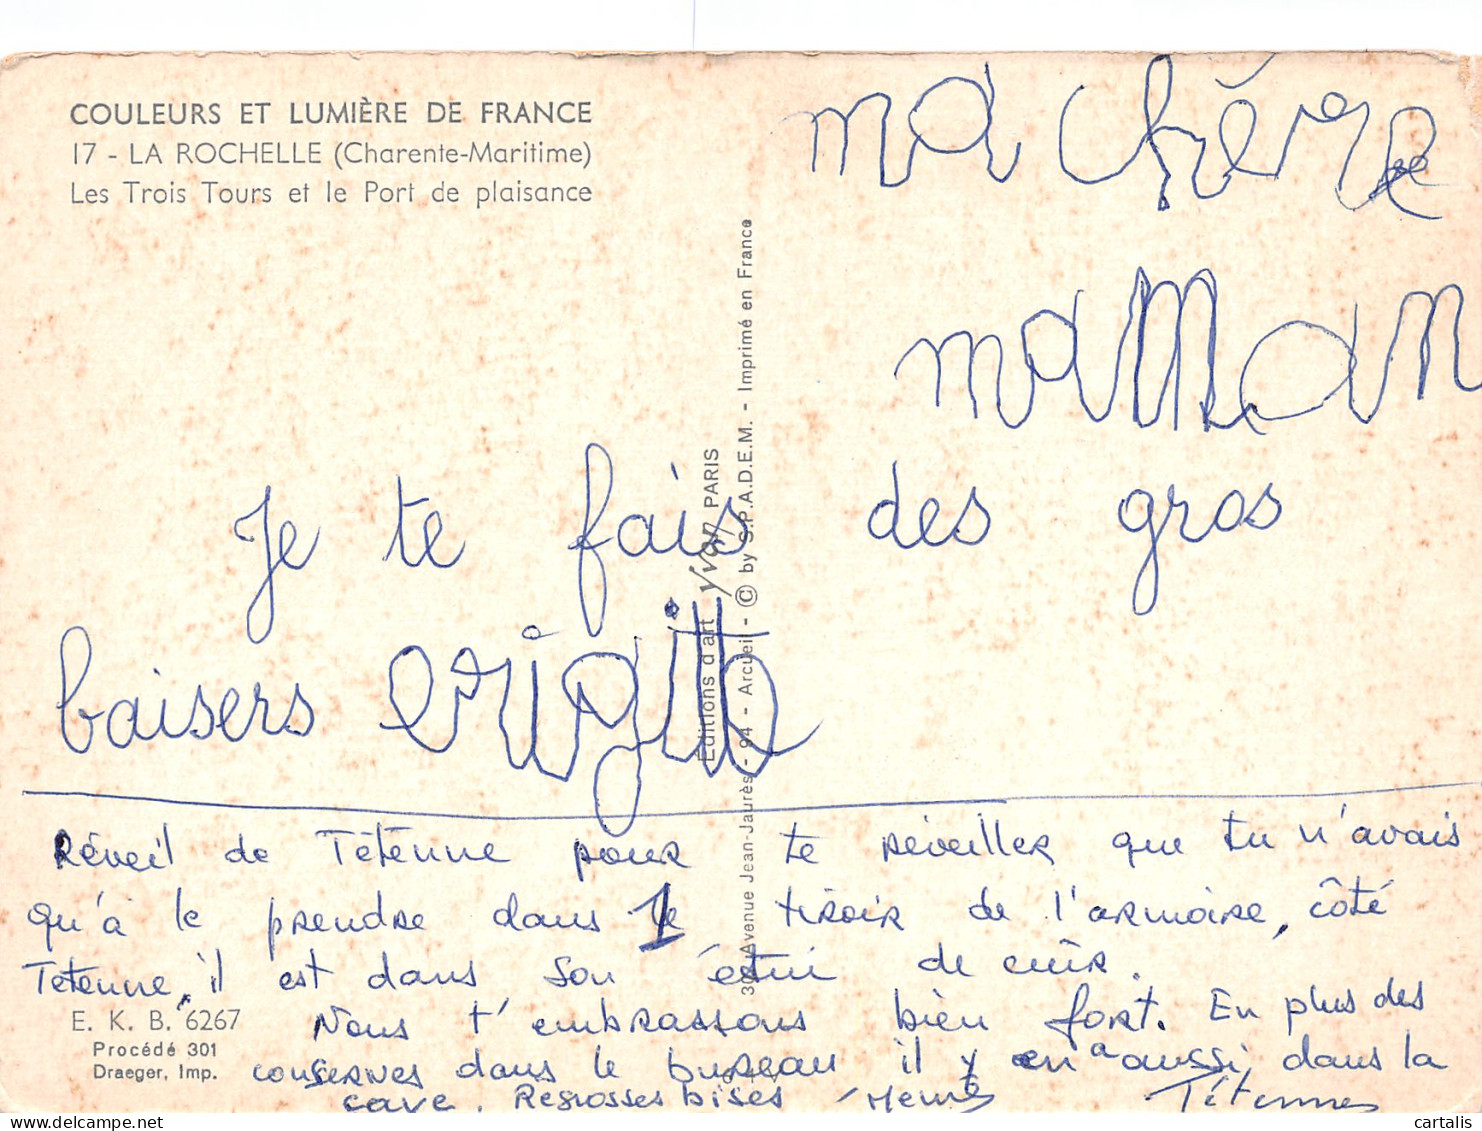 COULEURS ET LUMIÈRE DE FRANCE
17 - LA ROCHELLE (Charente-Maritime)
Les Trois Tours et le Port de plaisance
ma chère
maman
Je te fais des gros
baisers
Réveil de Tétenne pour te réveiller que tu n'avais
qu'à le prendre dans le tiroir de l'armoire, côté
Tetenne, il est dans son étui de cuir.
Nous t'embrassons bien fort. En plus des
conserves dans le bureau il y en a aussi dans la
cave. Regrosses bises Mémé Tétenne
E. K. B. 6267
Procédé 301
Draeger, Imp.
Éditions d'art yvon PARIS
30 Avenue Jean-Jaurès - 94 - Arcueil - © by S.P.A.D.E.M. - Imprimé en France
cartalis